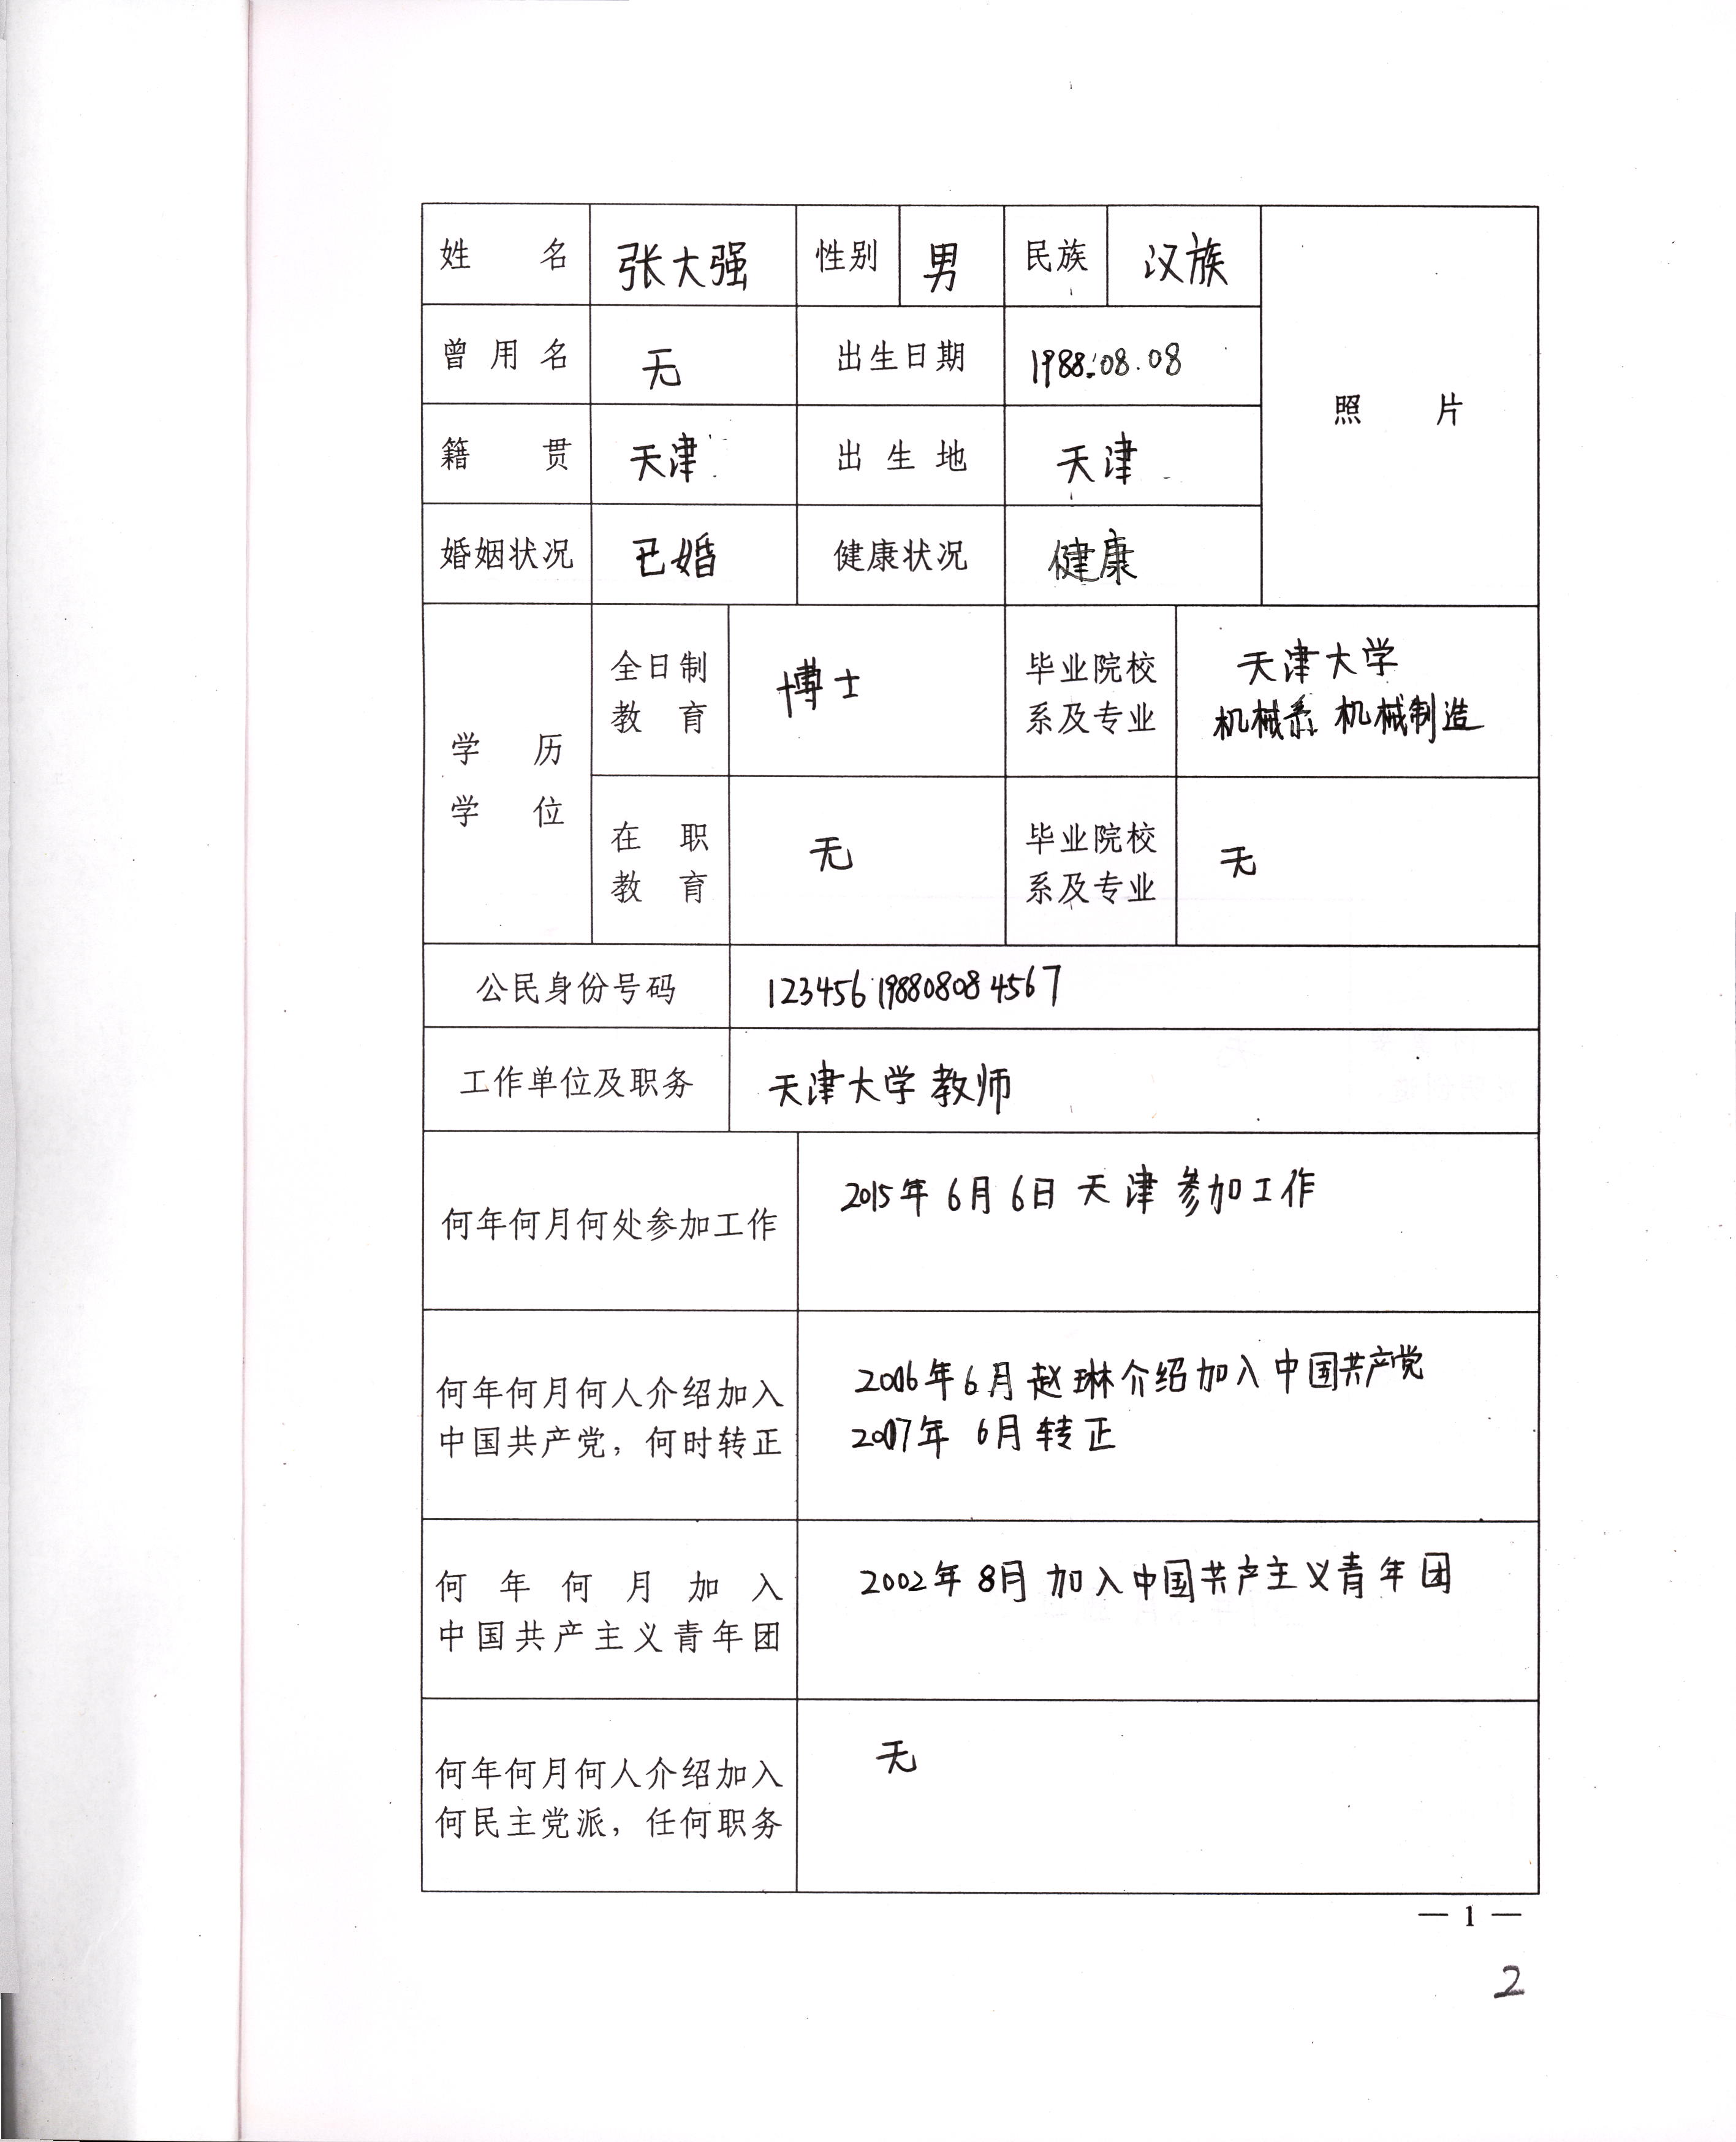 姓名 张大强 性别 男 民族 汉族
曾用名 无 出生日期 1988.08.08
照片
籍贯 天津 出生地 天津
婚姻状况 已婚 健康状况 健康
学历
学位
全日制
教育
博士
毕业院校
系及专业
天津大学
机械系 机械制造
在职
教育
无
毕业院校
系及专业
无
公民身份号码 123456 19880808 4567
工作单位及职务 天津大学 教师
何年何月何处参加工作
2015年6月6日 天津 参加工作
何年何月何人介绍加入
中国共产党，何时转正
2006年6月 赵琳介绍加入中国共产党
2007年 6月 转正
何年何月加入
中国共产主义青年团
2002年8月 加入中国共产主义青年团
何年何月何人介绍加入
何民主党派，任何职务
无
— 1 —
2